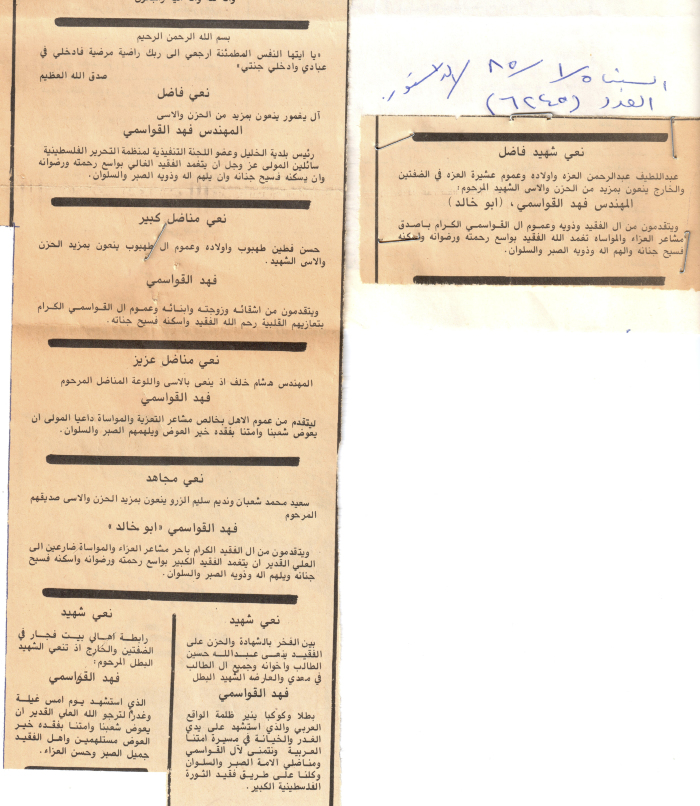 بسم الله الرحمن الرحيم
«يا ايتها النفس المطمئنة ارجعي الى ربك راضية مرضية فادخلي في
عبادي وادخلي جنتي»
صدق الله العظيم
نعي فاضل
آل يغمور ينعون بمزيد من الحزن والاسى
المهندس فهد القواسمي
رئيس بلدية الخليل وعضو اللجنة التنفيذية لمنظمة التحرير الفلسطينية
سائلين المولى عز وجل ان يتغمد الفقيد الغالي بواسع رحمته ورضوانه
وان يسكنه فسيح جنانه وان يلهم اله وذويه الصبر والسلوان.
نعي مناضل كبير
حسن فطين طهبوب واولاده وعموم ال طهبوب ينعون بمزيد الحزن
والاسى الشهيد.
فهد القواسمي
ويتقدمون من اشقائه وزوجته وابنائه وعموم ال القواسمي الكرام
بتعازيهم القلبية رحم الله الفقيد واسكنه فسيح جنانه.
نعي مناضل عزيز
المهندس هشام خلف اذ ينعى بالاسى واللوعة المناضل المرحوم
فهد القواسمي
ليتقدم من عموم الاهل بخالص مشاعر التعزية والمواساة داعيا المولى ان
يعوض شعبنا وامتنا بفقده خير العوض ويلهمهم الصبر والسلوان.
نعي مجاهد
سعيد محمد شعبان ونديم سليم الزرو ينعون بمزيد الحزن والاسى صديقهم
المرحوم
فهد القواسمي «ابو خالد»
ويتقدمون من ال الفقيد الكرام باحر مشاعر العزاء والمواساة ضارعين الى
العلي القدير ان يتغمد الفقيد الكبير بواسع رحمته ورضوانه واسكنه فسيح
جنانه ويلهم اله وذويه الصبر والسلوان.
نعي شهيد
بين الفخر بالشهادة والحزن على
الفقيد ينعى عبدالله حسين
الطالب واخوانه وجميع ال الطالب
في معدي والعارضه الشهيد البطل
فهد القواسمي
بطلا وكوكبا ينير ظلمة الواقع
العربي والذي استشهد على يدي
الغدر والخيانة في مسيرة امتنا
العربية ونتمنى لآل القواسمي
ومناضلي الامة الصبر والسلوان
وكلنا على طريق فقيد الثورة
الفلسطينية الكبير.
نعي شهيد
رابطة اهالي بيت فجار في
الضفتين والخارج اذ تنعي الشهيد
البطل المرحوم:
فهد القواسمي
الذي استشهد يوم امس غيلة
وغدرا لترجو الله العلي القدير ان
يعوض شعبنا وامتنا بفقده خير
العوض مستلهمين واهل الفقيد
جميل الصبر وحسن العزاء.
السبت ٥/١/٨٥ الدستور
العدد (٦٢٤٥)
نعي شهيد فاضل
عبداللطيف عبدالرحمن العزه واولاده وعموم عشيرة العزه في الضفتين
والخارج ينعون بمزيد من الحزن والاسى الشهيد المرحوم:
المهندس فهد القواسمي، (ابو خالد)
ويتقدمون من ال الفقيد وذويه وعموم ال القواسمي الكرام باصدق
مشاعر العزاء والمواساه تغمد الله الفقيد بواسع رحمته ورضوانه واسكنه
فسيح جنانه والهم اله وذويه الصبر والسلوان.